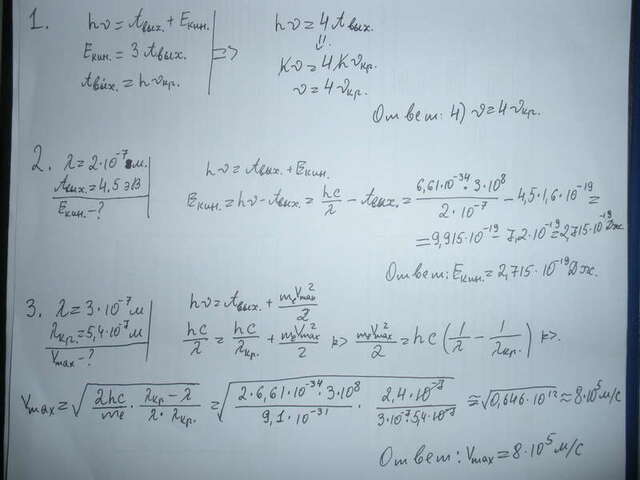 1. hν = Aвых. + Eкин. | hν = 4 Aвых.
Eкин. = 3 Aвых. | => ⇓
Aвых. = hνкр. | hν = 4 hνкр.
ν = 4 νкр.
Ответ: 4) ν = 4 νкр.
2. λ = 2·10⁻⁷ м. | hν = Aвых. + Eкин.
Aвых. = 4,5 эВ | Eкин. = hν - Aвых. = hc/λ - Aвых. = (6,61·10⁻³⁴·3·10⁸)/(2·10⁻⁷) - 4,5·1,6·10⁻¹⁹ =
Eкин. - ? | = 9,915·10⁻¹⁹ - 7,2·10⁻¹⁹ = 2,715·10⁻¹⁹ Дж.
Ответ: Eкин. = 2,715·10⁻¹⁹ Дж.
3. λ = 3·10⁻⁷ м | hν = Aвых. + mₑVmax²/2
λкр. = 5,4·10⁻⁷ м | hc/λ = hc/λкр. + mₑVmax²/2 => mₑVmax²/2 = hc (1/λ - 1/λкр.) =>
Vmax - ?
Vmax = √(2hc/mₑ · (λкр - λ)/(λ·λкр.)) = √((2·6,61·10⁻³⁴·3·10⁸)/(9,1·10⁻³¹) · (2,4·10⁻⁷)/(3·10⁻⁷·5,4·10⁻⁷)) ≅ √(0,646·10¹²) ≈ 8·10⁵ м/с
Ответ: Vmax = 8·10⁵ м/с